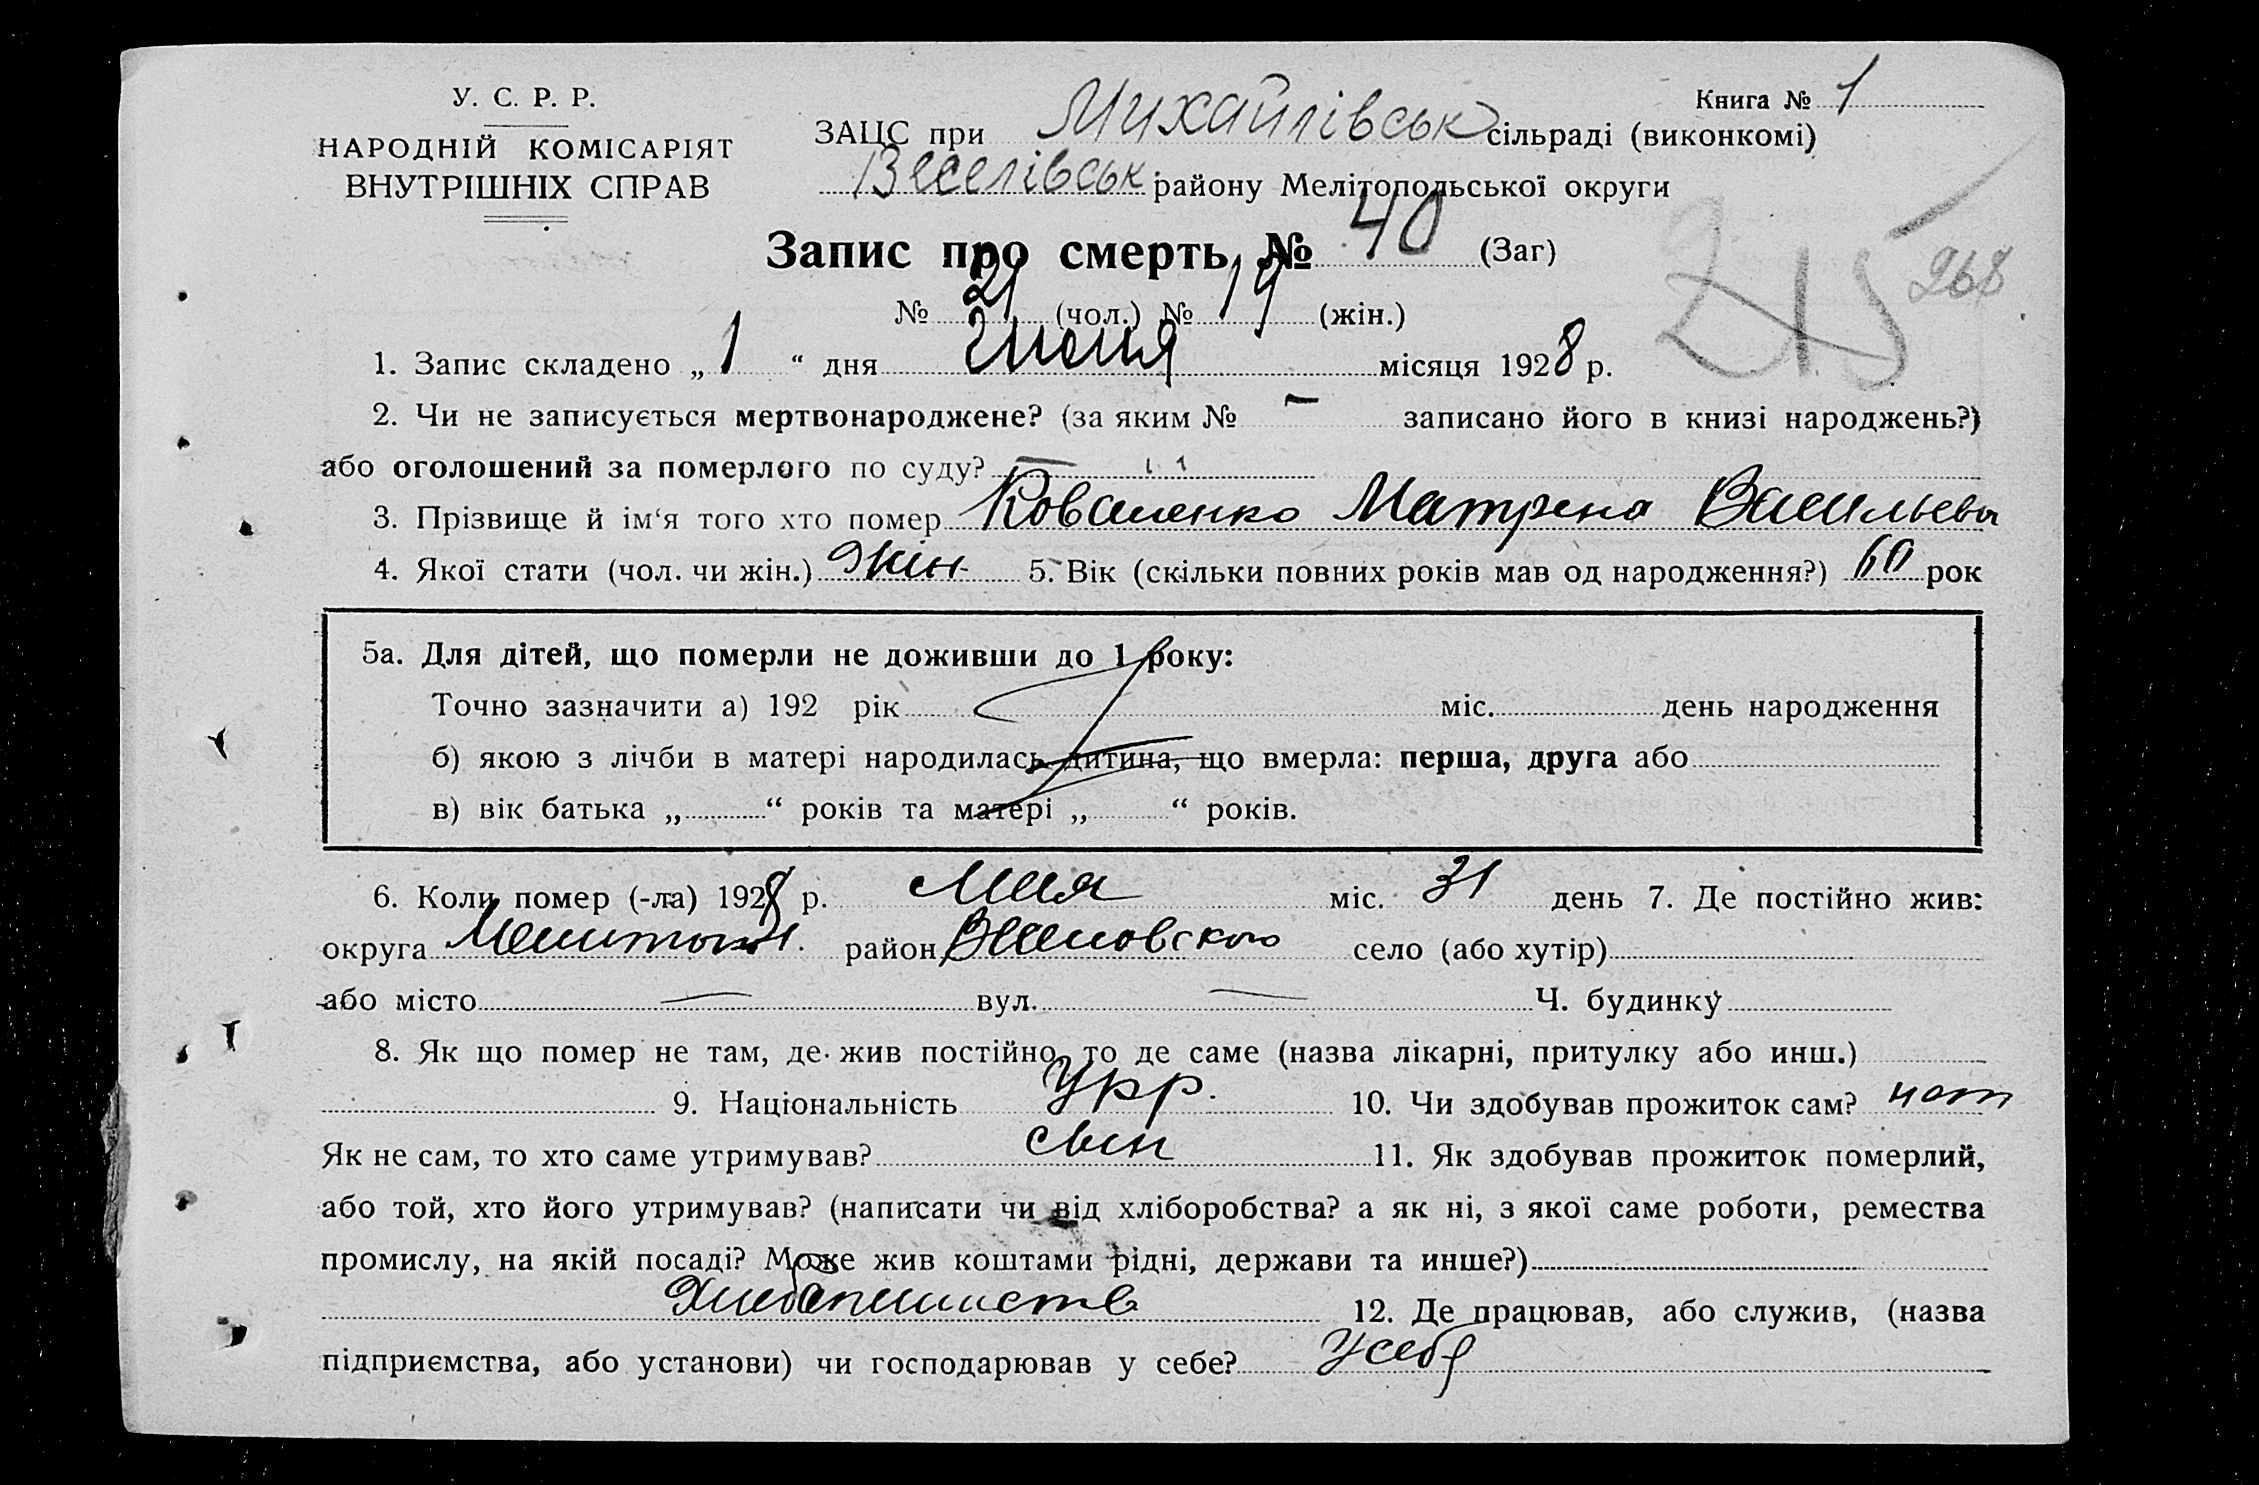 У. С. Р. Р.
НАРОДНІЙ КОМІСАРІЯТ
ВНУТРІШНІХ СПРАВ
Книга № 1
ЗАЦС при Михайлівськ сільраді (виконкомі)
Веселівськ. району Мелітопольської округи
Запис про смерть № 40 (Заг)
№ 21 (чол.) № 19 (жін.)
215 268
1. Запис складено „ 1 “ дня Июня місяця 1928 р.
2. Чи не записується мертвонароджене? (за яким № — записано його в книзі народжень?)
або оголошений за померлого по суду? —
3. Прізвище й ім‘я того хто помер Коваленко Матрена Васильевн
4. Якої стати (чол. чи жін.) Жін. 5. Вік (скільки повних років мав од народження?) 60 рок
5а. Для дітей, що померли не доживши до 1 року:
Точно зазначити а) 192 рік міс. день народження
б) якою з лічби в матері народилась дитина, що вмерла: перша, друга або
в) вік батька „ “ років та матері „ “ років.
6. Коли помер (-ла) 1928 р. Мая міс. 31 день 7. Де постійно жив:
округа район село (або хутір)
або місто — вул. — Ч. будинку
8. Як що помер не там, де жив постійно, то де саме (назва лікарні, притулку або инш.)
9. Національність Укр. 10. Чи здобував прожиток сам? нет
Як не сам, то хто саме утримував? сын 11. Як здобував прожиток померлий,
або той, хто його утримував? (написати чи від хліборобства? а як ні, з якої саме роботи, ремества
промислу, на якій посаді? Може жив коштами рідні, держави та инше?)
Хлебопашеств 12. Де працював, або служив, (назва
підприємства, або установи) чи господарював у себе? У себя